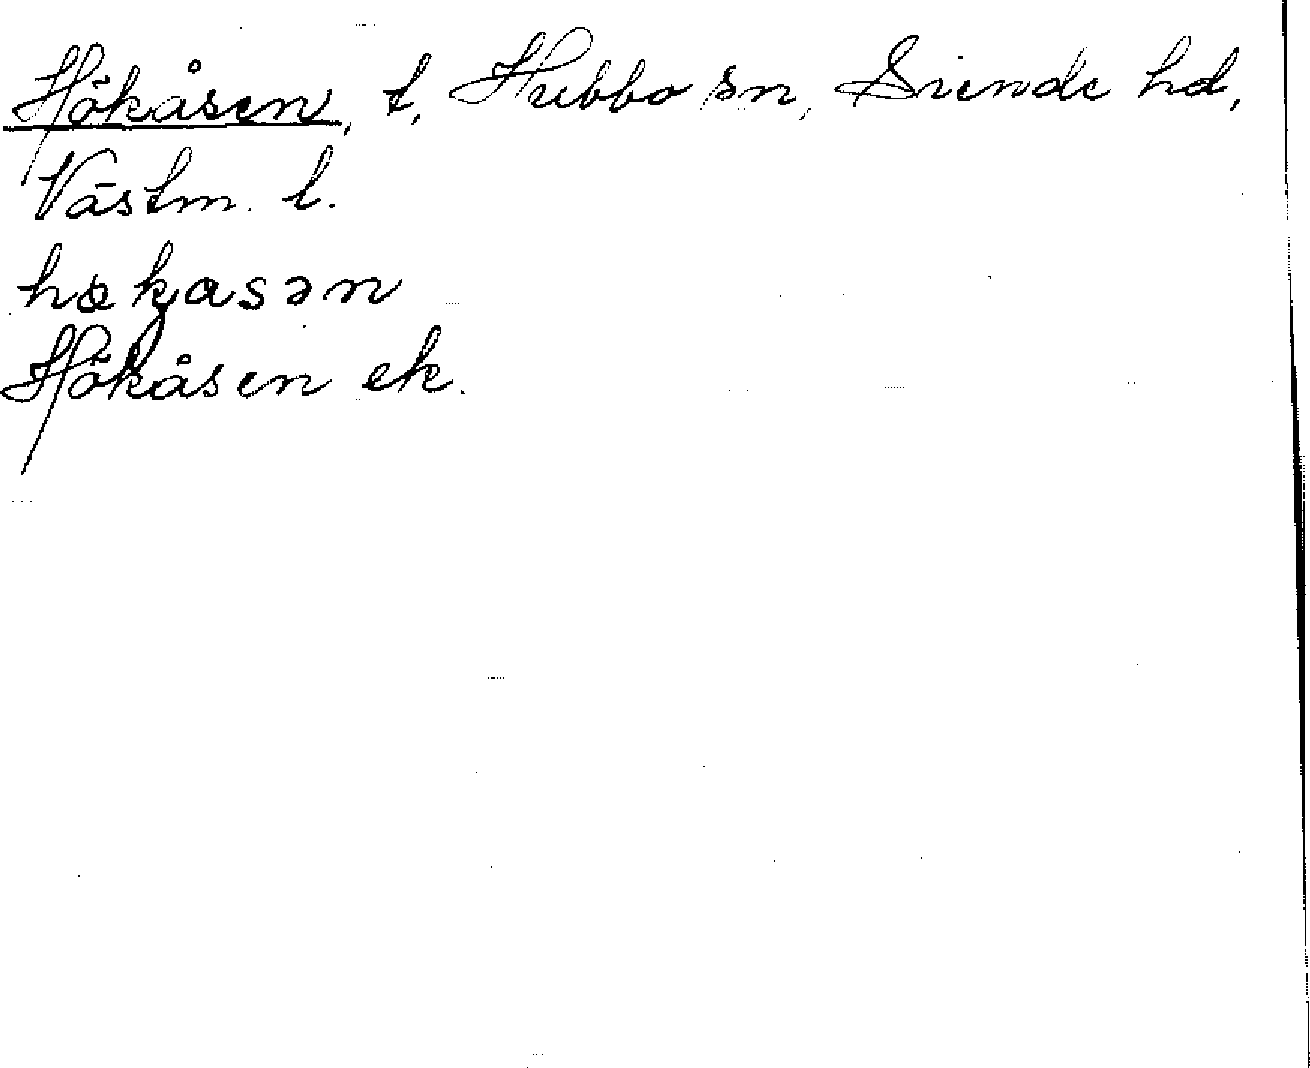 Hökåsen, t, Hubbo sn, Siende hd,
Västm. l.
høkasən
Hökåsen ek.